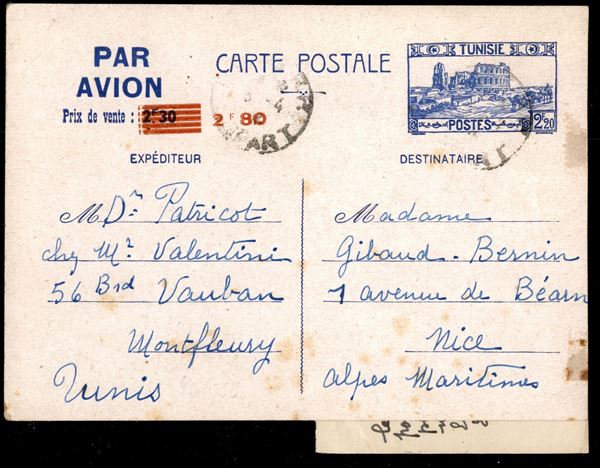 PAR AVION
Prix de vente : 2F30 2F80
CARTE POSTALE
TUNISIE
POSTES 2F20
EXPÉDITEUR
M Dr Patricot
chez Mr Valentini
56 Brd Vauban
Montfleury
Tunis
DESTINATAIRE
Madame
Gibaud-Bernin
1 avenue de Béarn
Nice
Alpes Maritimes